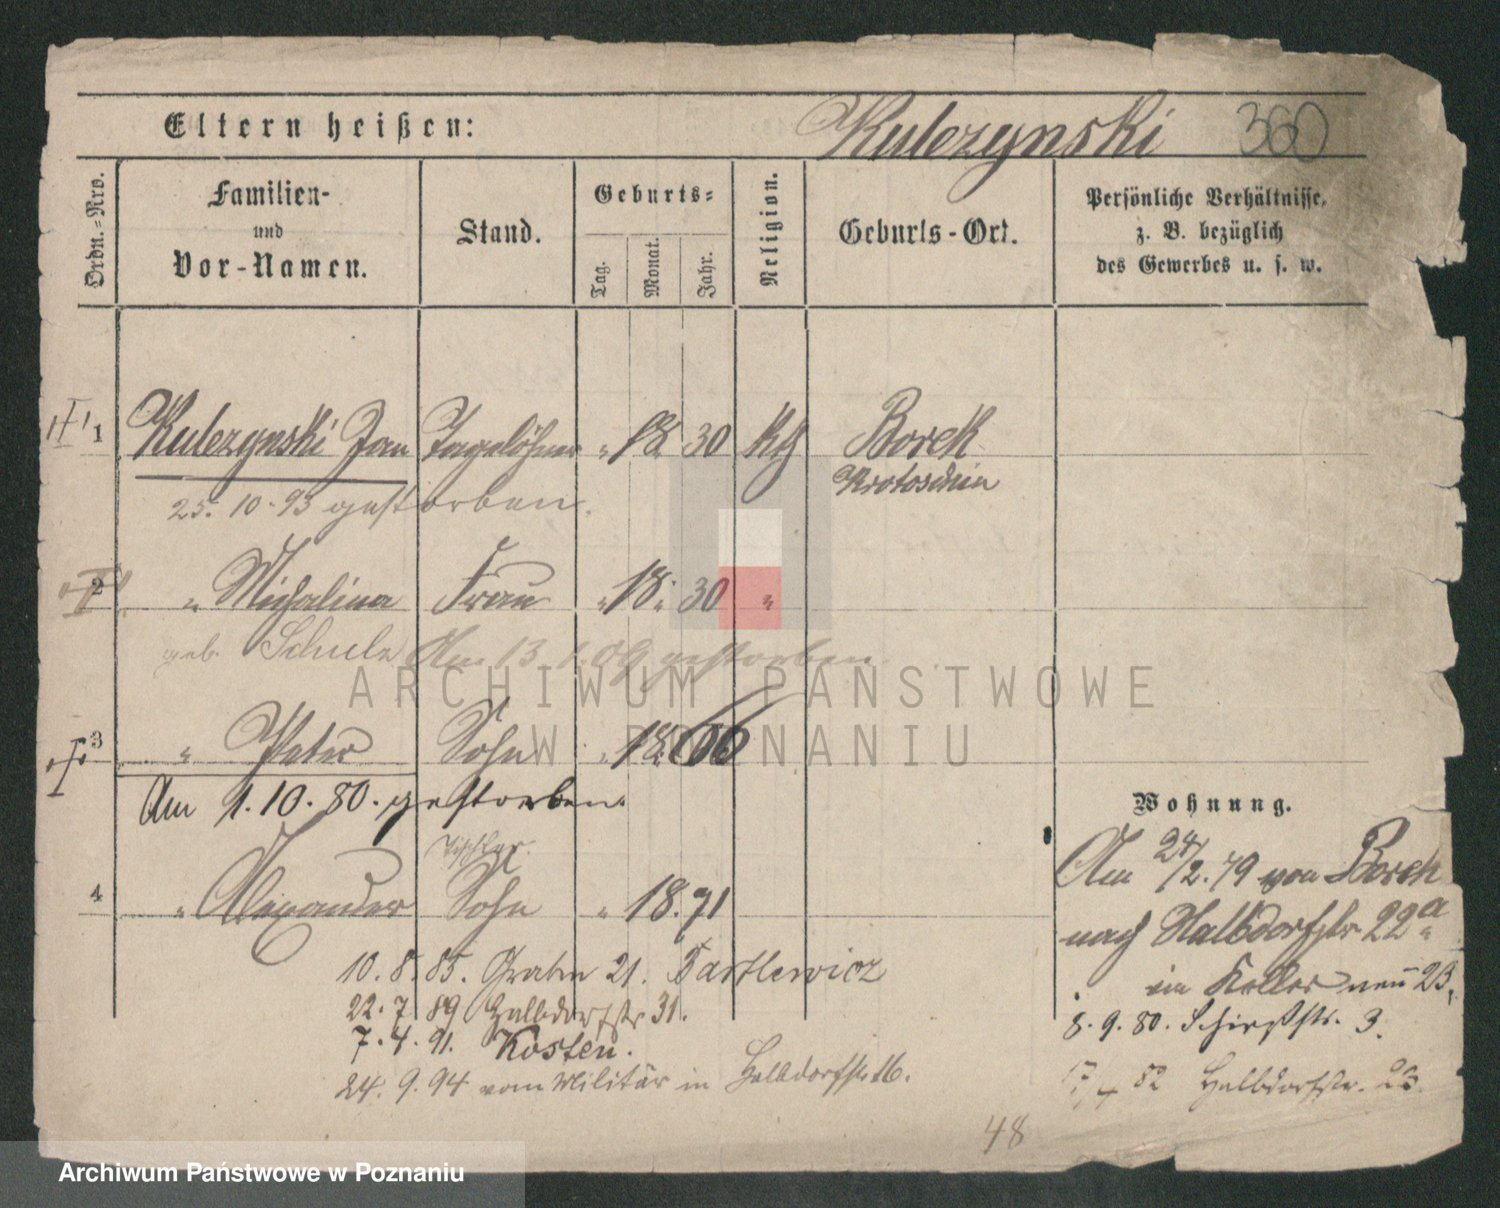 Eltern heißen: Kulczynski 360
Ordn.=Nro. Familien- und Vor-Namen. Stand. Geburts= Tag. Monat. Jahr. Religion. Geburts-Ort. Persönliche Verhältnisse, z. B. bezüglich des Gewerbes u. s. w.
1 Kulczynski Jan Tagelöhner " 18 30 kth Borek
Krotoschin
25. 10. 93 gestorben.
2 " Michalina Frau " 18. 30 "
geb. Schulz Am 13 1. 09 gestorben
3 " Peter Sohn " 18.66
Am 1. 10. 80. gestorben.
Tischler.
4 " Alexander Sohn " 18.71
Wohnung.
Am 24/2. 79 von Borek
nach Halbdorfstr 22a
im Keller neu 23.
8. 9. 80. Schießstr. 3.
82 Halbdorfstr. 23.
10. 8. 85. Graben 21. Bartlewicz
22. 7. 89 Halbdorfstr 31.
7. 4. 91. Kosten.
24. 9. 94 vom Militär in Halbdorfstr 16.
48
ARCHIWUM PAŃSTWOWE
W POZNANIU
Archiwum Państwowe w Poznaniu